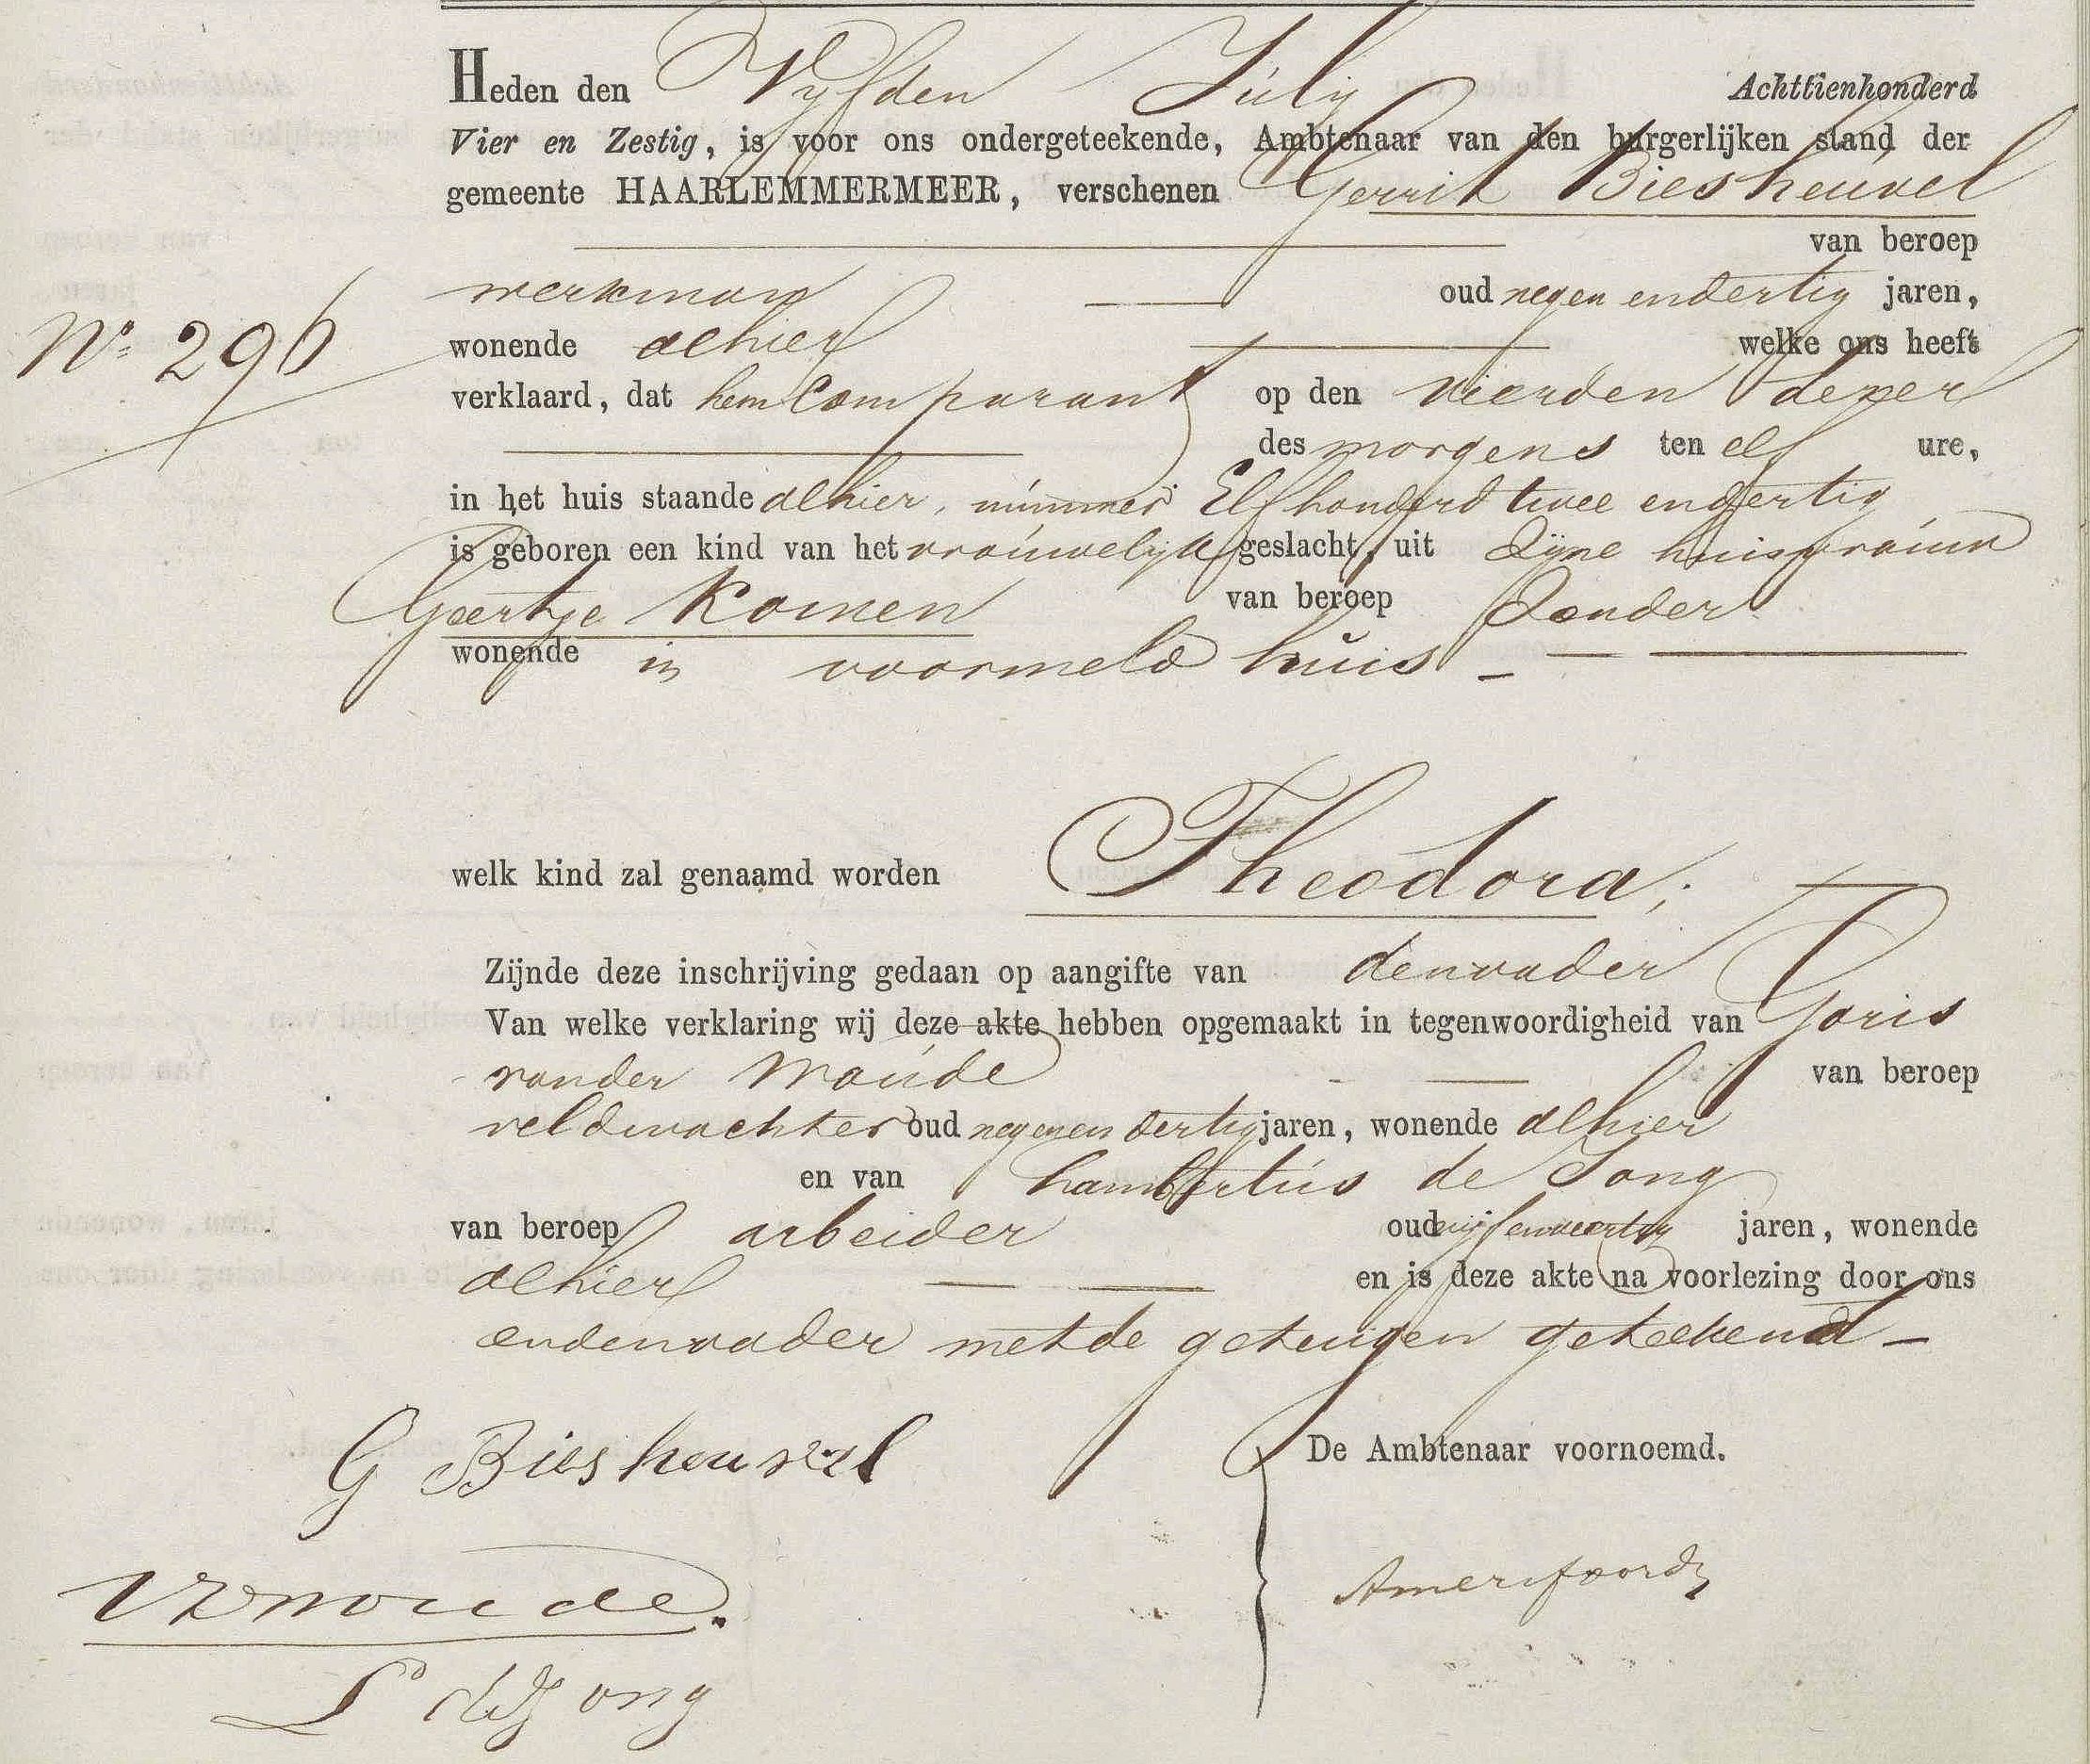 Heden den Vyfden July Achttienhonderd
Vier en Zestig, is voor ons ondergeteekende, Ambtenaar van den burgerlijken stand der
gemeente HAARLEMMERMEER, verschenen Gerrit Biesheuvel
van beroep
werkman oud negen endertig jaren,
No 296
wonende alhier welke ons heeft
verklaard, dat hem Comparant op den vierden dezer
des morgens ten elf ure,
in het huis staande alhier, nummer Elfhonderd twee endertig
is geboren een kind van het vrouwelyk geslacht, uit Zyne huisvrouw
Geertje Komen van beroep Zonder
wonende in voormeld huis
welk kind zal genaamd worden Theodora;
Zijnde deze inschrijving gedaan op aangifte van denvader
Van welke verklaring wij deze akte hebben opgemaakt in tegenwoordigheid van Goris
vander Woude van beroep
veldwachter oud negenen dertig jaren, wonende alhier
en van Lambertus de Jong
van beroep arbeider oud vijfenveertig jaren, wonende
alhier en is deze akte na voorlezing door ons
endenvader metde getuigen geteekend
G Biesheuvel
De Ambtenaar voornoemd.
Amersfoordt
L de Jong